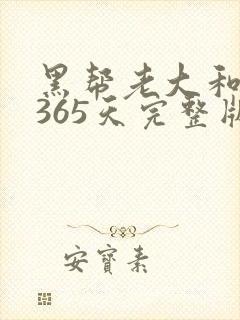 黑帮老大和
365天完整版
安宝素